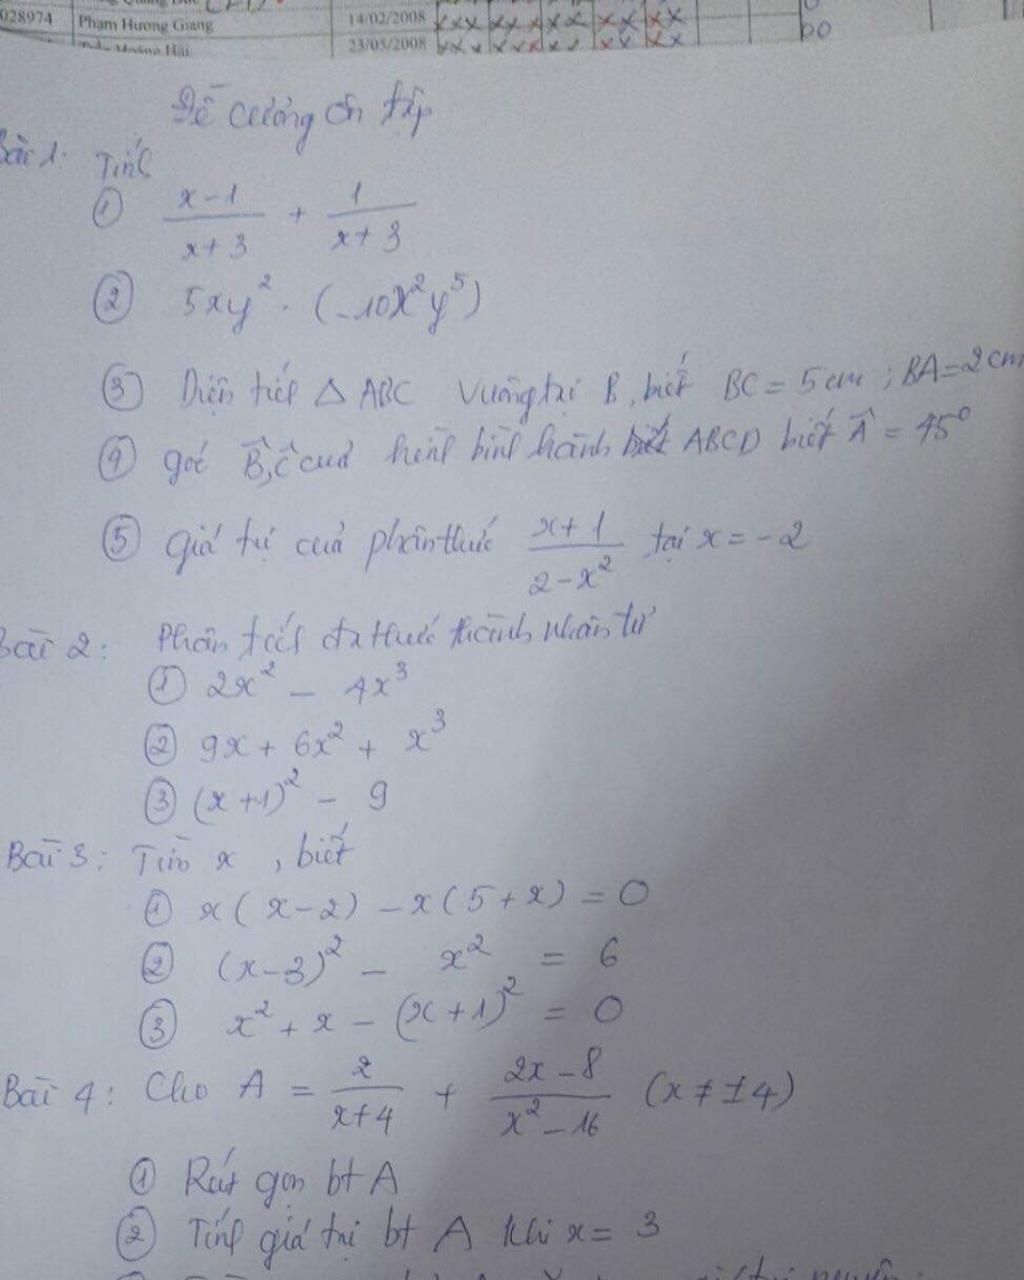 028974 Phạm Hương Giang 14/02/2008 x x x x x x x x x x x x
23/05/2008 x x x x x x x x x x x x
Đề cương ôn tập
Bài 1. Tính
① x-1/x+3 + 1/x+3
② 5xy² . (-10x²y⁵)
③ Diện tích △ ABC vuông tại B, biết BC = 5cm ; BA = 2cm
④ góc B̂, Ĉ của hình bình hành ABCD biết Â = 45°
⑤ Giá trị của phân thức x+1/2-x² tại x = -2
Bài 2: Phân tích đa thức thành nhân tử
① 2x² - 4x³
② 9x + 6x² + x³
③ (x+1)² - 9
Bài 3: Tìm x, biết
① x(x-2) - x(5+x) = 0
② (x-3)² - x² = 6
③ x² + x - (x+1)² = 0
Bài 4: Cho A = 2/x+4 + 2x-8/x²-16 (x ≠ ±4)
① Rút gọn bt A
② Tính giá trị bt A khi x = 3